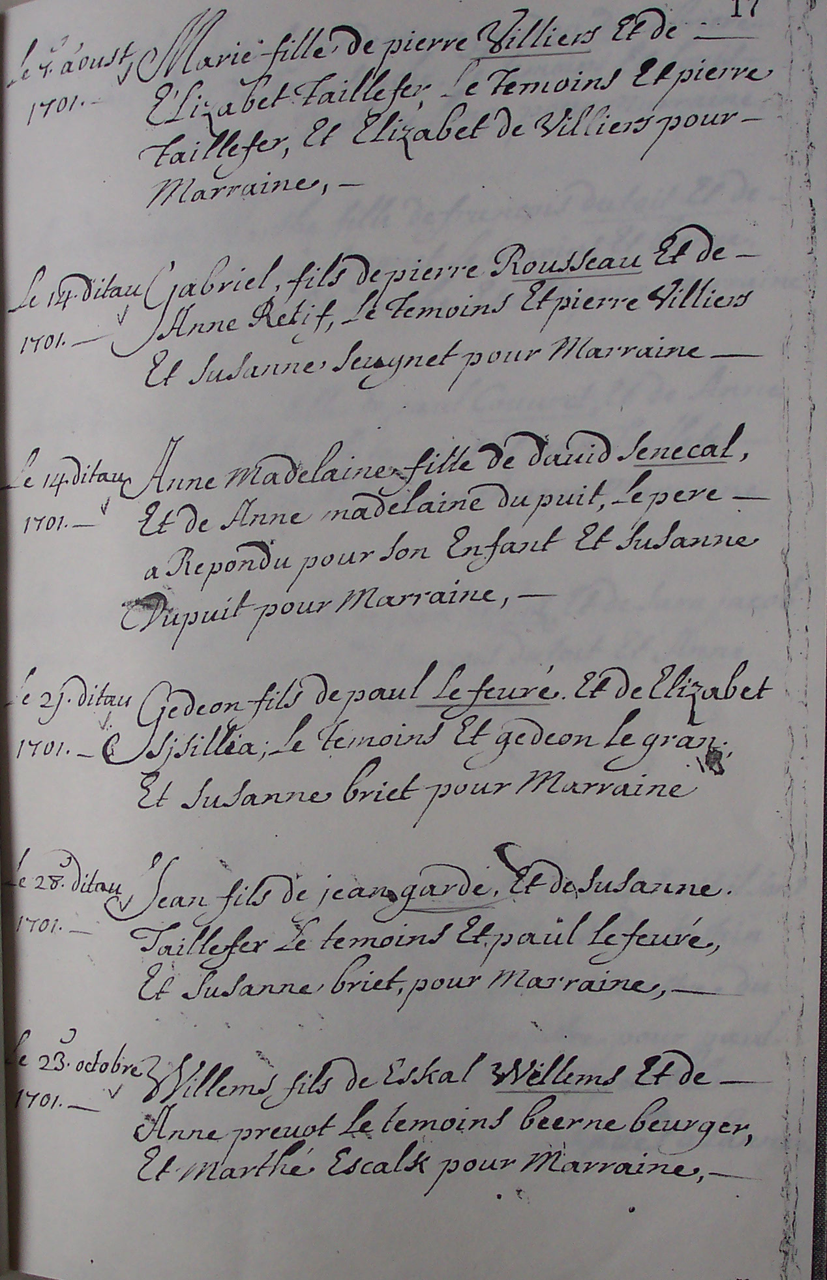 17
Le 7. aoust Marie fille de pierre Villiers Et de —
1701. — Elizabet Taillefer, Le Temoins Et pierre
Taillefer, Et Elizabet de Villiers pour —
Marraine, —
Le 14. ditau Gabriel, fils de pierre Rousseau Et de —
1701. — Anne Retif, Le Temoins Et pierre Villiers
Et Susanne Seugnet pour Marraine —
Le 14. ditau Anne Madelaine fille de david Senecal,
1701. — Et de Anne madelaine du puit, Le pere —
a Repondu pour son Enfant Et Susanne
Dupuit pour Marraine, —
Le 21. ditau Gedeon fils de paul Le feuré. Et de Elizabet
1701. — Sisillia; Le temoins Et gedeon le gran;
Et Susanne briet pour Marraine
Le 28. ditau Jean fils de jean garde, Et de Susanne.
1701. — Taillefer Le temoins Et paül Le feuré,
Et Susanne briet, pour Marraine, —
Le 23. octobre Willems fils de Eskal Wellems Et de —
1701. — Anne preuot Le temoins beerne beurger,
Et Marthé Escalk pour Marraine, —